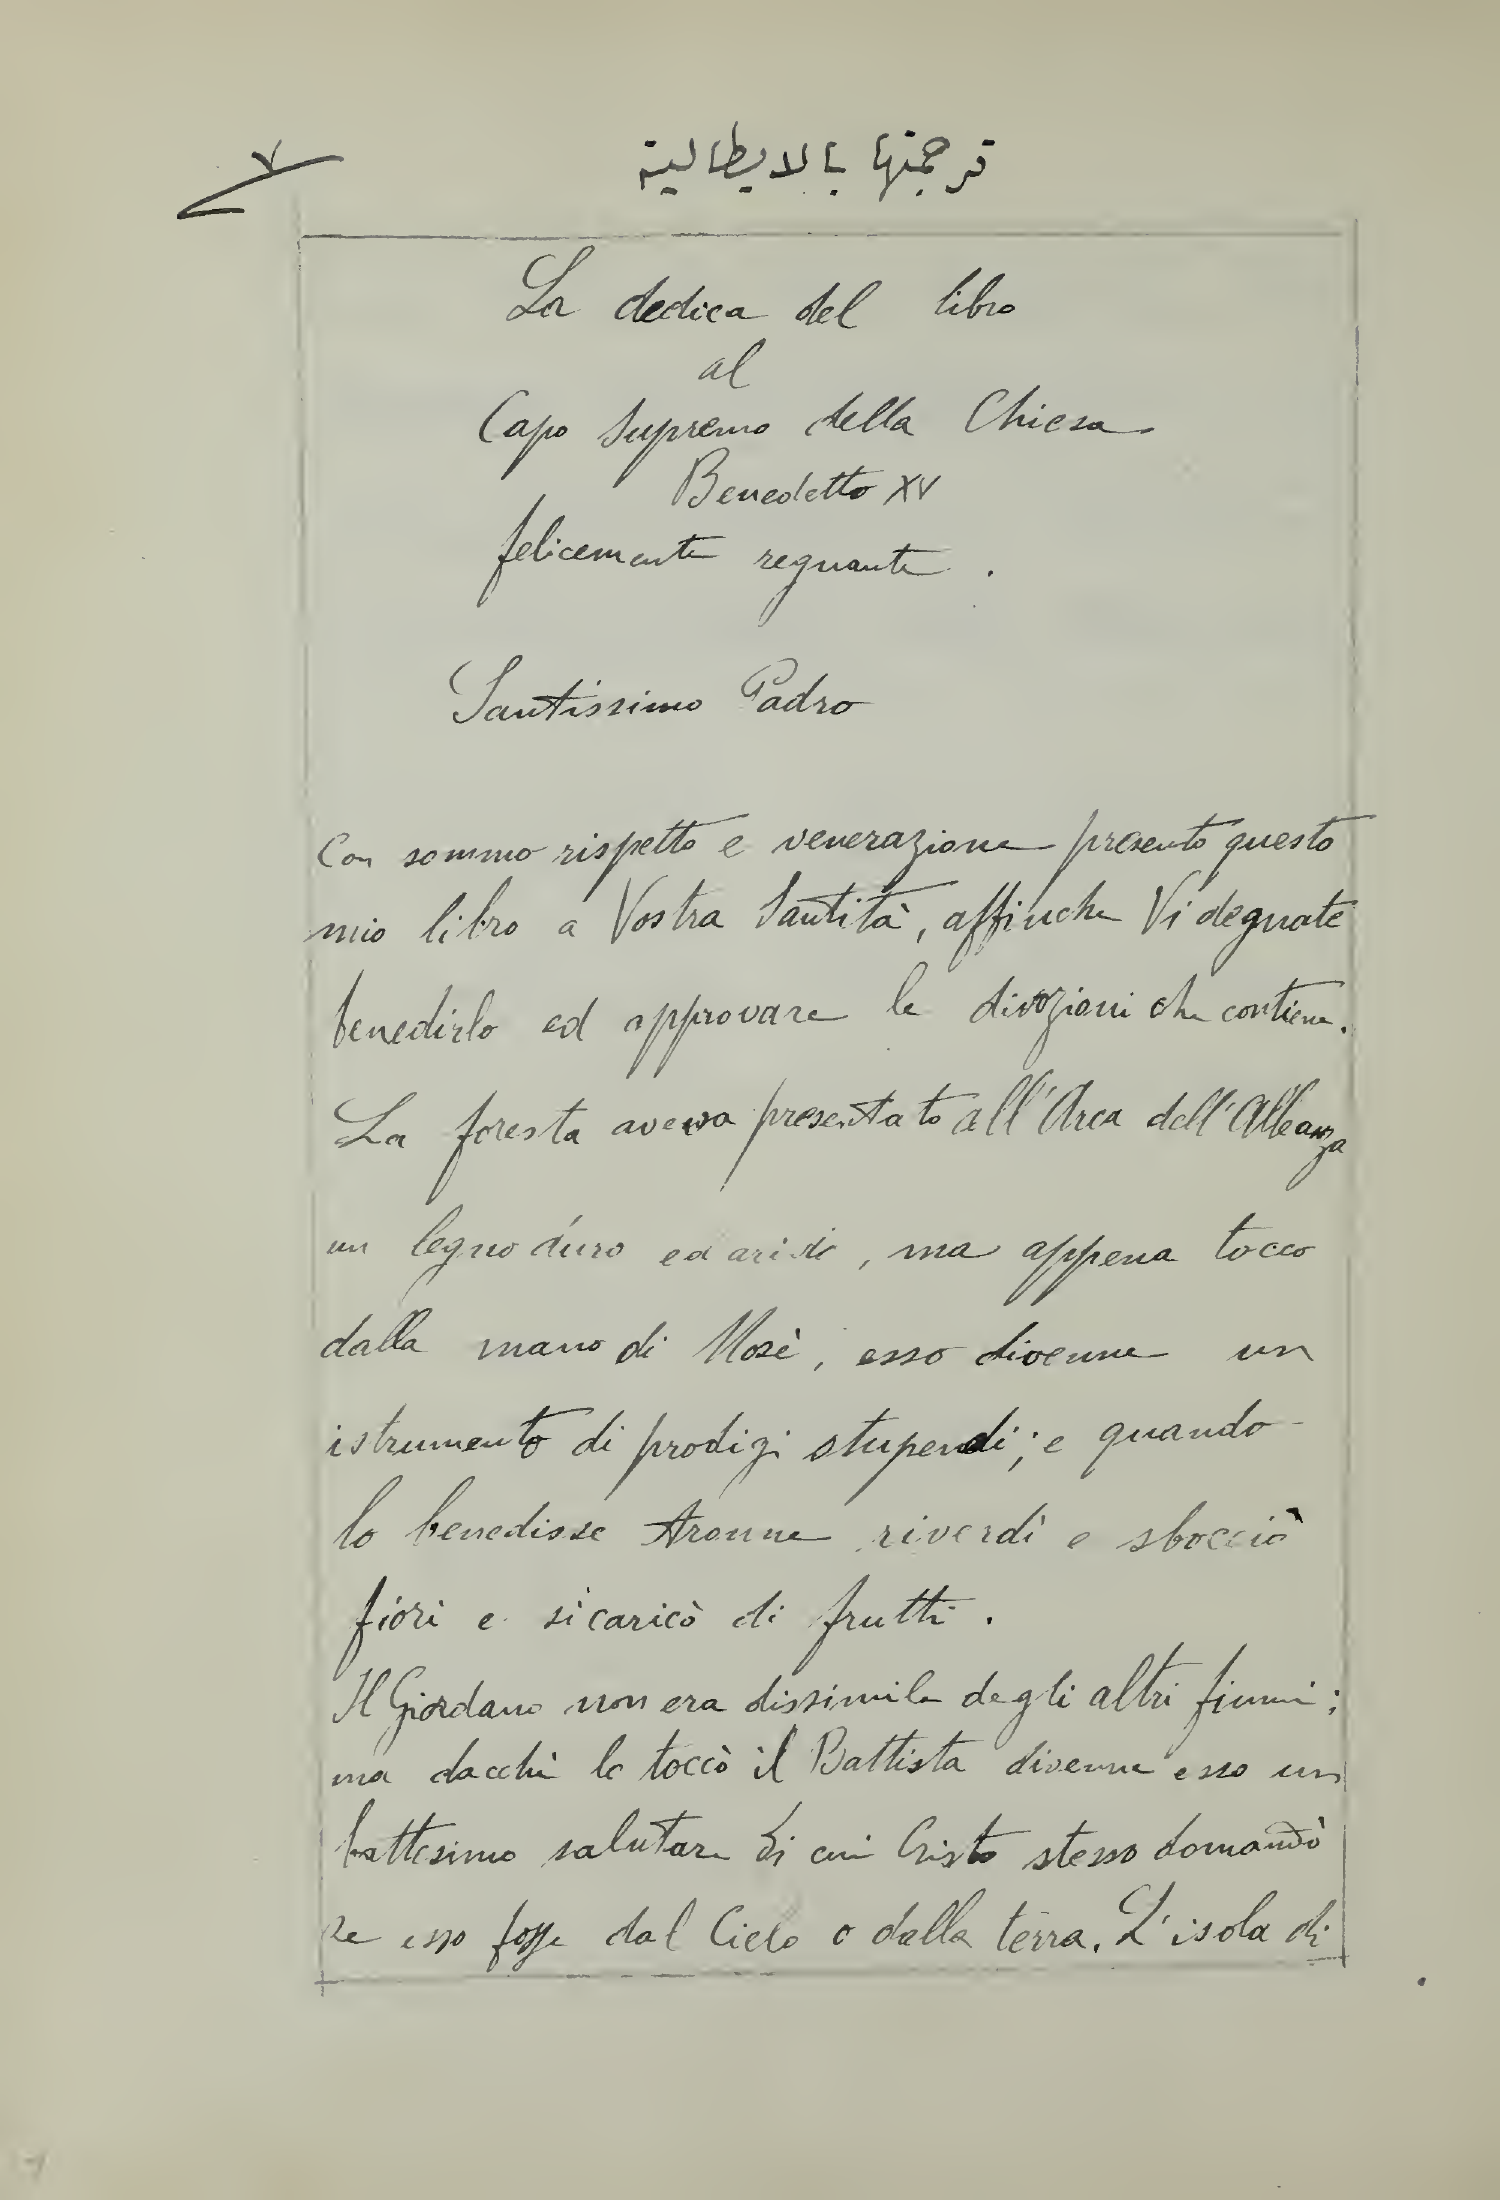 ٧
ترجمتها بالايطالية
La dedica del libro
al
Capo Supremo della Chiesa
Benedetto XV
felicemente regnante .
Santissimo Padro
Con sommo rispetto e venerazione presento questo
mio libro a Vostra Santità, affinche Vi degnate
benedirlo ed approvare le divozioni che contiene.
La foresta aveva presentato all'Arca dell'Alleanza
un legno duro ed arido, ma appena tocco
dalla mano di Mosè, esso divenne un
istrumento di prodigi stupendi; e quando
lo benedisse Aronne riverdì e sbocciò
fiori e si caricò di frutti .
Il Giordano non era dissimile degli altri fiumi;
ma dacchè lo toccò il Battista divenne esso un
battesimo salutare di cui Cristo stesso domandò
se esso fosse dal Cielo o dalla terra. L'isola di